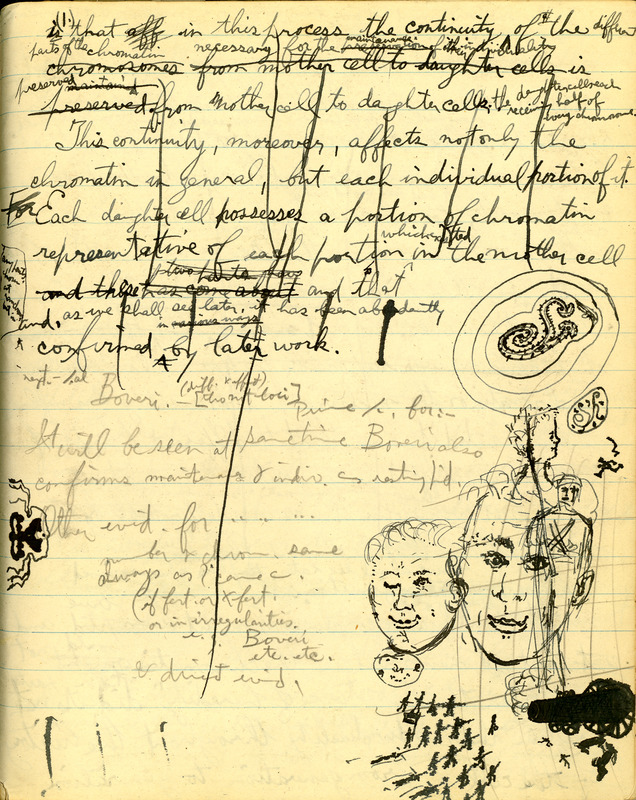 (1.)
is that eff in this process the continuity of the differ
parts of the chromatin necessary for the maintainance preservation of their individuality
chromosomes from mother cell to daughter cells is
preserved maintained
preserved from mother cell to daughter cells, the daughter cell each
receive half of
every chromosome.
This continuity, moreover, affects not only the
chromatin in general, but each individual portion of it.
For Each daughter cell possesses a portion of chromatin
representative of each portion which existed in the mother cell
and these has come about and that
and, as we shall see later, it has been abundantly
in various ways
confirmed by later work.
next
Boveri. (diff. x effd)
Prime
It will be seen at sametime Boveri also
confirms maintenance of indiv. cs resting
Other evid. for " " "
number x chrom. same
always as
if fert. or x fert.
or in irregularities.
Boveri
etc. etc.
& direct evid.